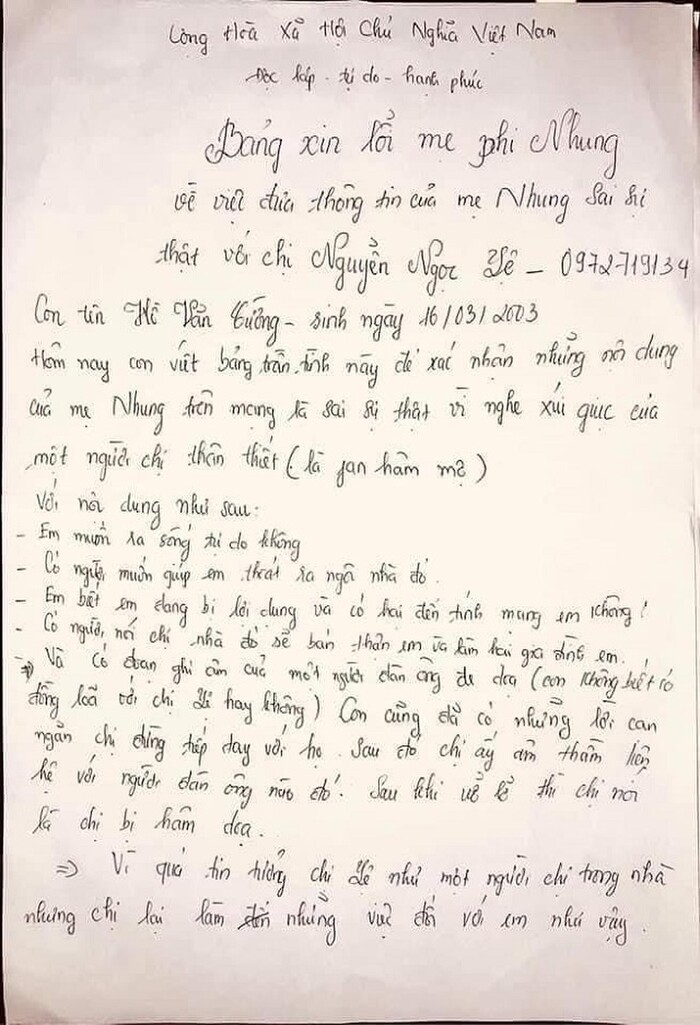 Cộng Hoà Xã Hội Chủ Nghĩa Việt Nam
Độc lập - tự do - hạnh phúc
Bảng xin lổi mẹ phi Nhung
về việt đưa thông tin của mẹ Nhung sai sự
thật với chị Nguyễn Ngọc Lệ - 0972719134
Con tên Hồ Văn Cường - sinh ngày 16/03/2003
Hôm nay con viết bảng trần tình này để xác nhận những nội dung
của mẹ Nhung trên mạng là sai sự thật vì nghe xúi giục của
một người chị thân thiết (là fan hâm mộ)
Với nội dung như sau:
- Em muốn ra sống tự do không
- Có người muốn giúp em thoát ra ngôi nhà đó.
- Em biết em đang bị lợi dụng và có hại đến tính mạng em không!
- Có người nói chị nhà đó sẽ bán thân em và làm hại gia đình em.
=> Và có đoạn ghi âm của một người đàn ông đe doạ (con không biết có
đồng loã với chị Lệ hay không) Con cũng đã có những lời can
ngăn chị đừng tiếp tay với họ. Sau đó chị ấy âm thầm liên
hệ với người đàn ông nào đó. Sau khi vở lẻ thì chị nói
là chị bị hâm doạ.
=> Vì quá tin tưởng chị Lệ như một người chị trong nhà
nhưng chị lại làm những việc đó với em như vậy.